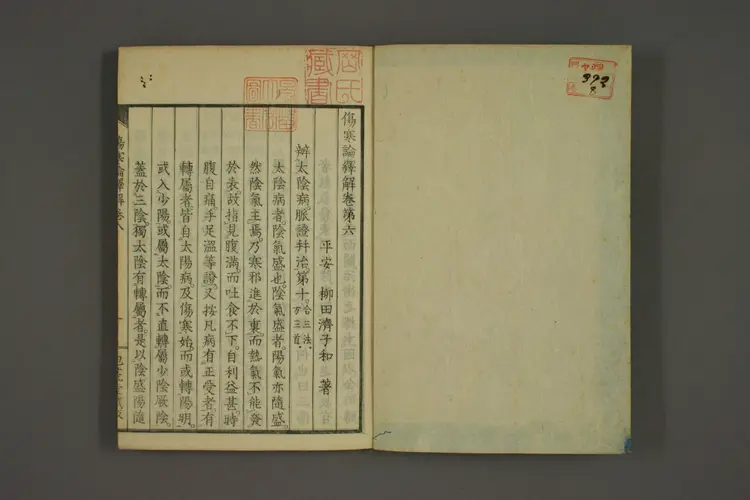 傷寒論釋解卷第六
平安 柳田濟子和著
辨太陰病脈證幷治第十 合三法方三首
太陰病者陰氣盛也陰氣盛者陽氣亦隨盛
然陰氣主焉乃寒邪進於裏而熱氣不能發
於表故指見腹滿而吐食不下自利益甚時
腹自痛手足溫等證又按凡病有正受者有
轉屬者皆自太陽病及傷寒始而或轉陽明
或入少陽或屬太陰而不直轉屬少陰厥陰
蓋於三陰獨太陰有轉屬者是以陰盛陽隨
傷寒論釋解卷八
藏書
393